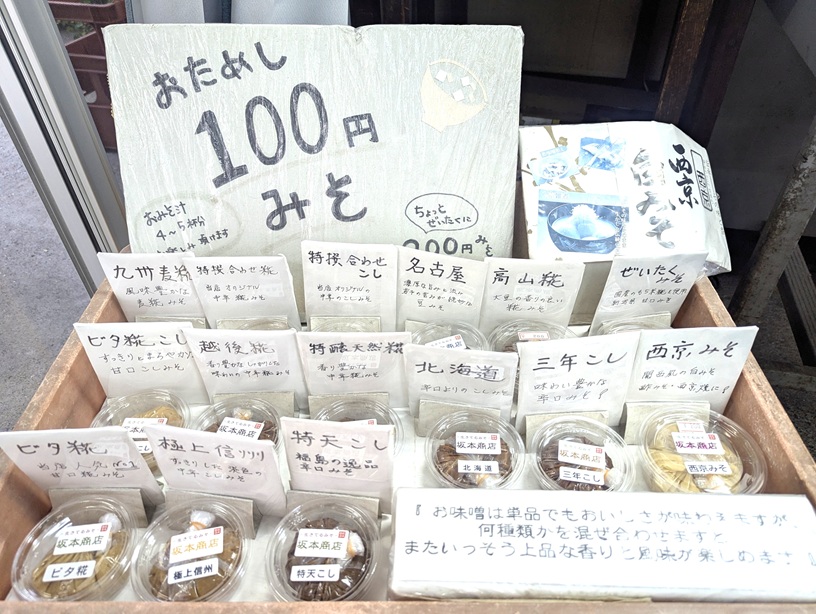 おためし
100円
みそ
おみそ汁
4〜5杯分
ちょっと
ぜいたくに
200円みそ
西京
九州麦糀
風味豊かな
麦糀みそ
特撰合わせ糀
当店オリジナル
中辛糀みそ
特撰合わせ
こし
当店オリジナルの
中辛のこしみそ
名古屋
豆みそ
高山糀
大豆の香りの良い
糀みそ
ぜいたく
みそ
ピタ糀こし
すっきりとまろやかな
甘口こしみそ
越後糀
特醸天然糀
香り豊かな
中辛糀みそ
北海道
辛口よりのこしみそ
三年こし
味わい豊かな
辛口みそ
西京みそ
関西風の白みそ
ピタ糀
当店人気No.1
甘口糀みそ
極上信州
すっきりした淡色の
中辛こしみそ
特天こし
福島の逸品
辛口みそ
坂本商店
北海道
坂本商店
三年こし
坂本商店
西京みそ
坂本商店
ピタ糀
坂本商店
極上信州
坂本商店
特天こし
『お味噌は単品でもおいしさが味わえますが
何種類かを混ぜ合わせますと
またいっそう上品な香りと風味が楽しめます』